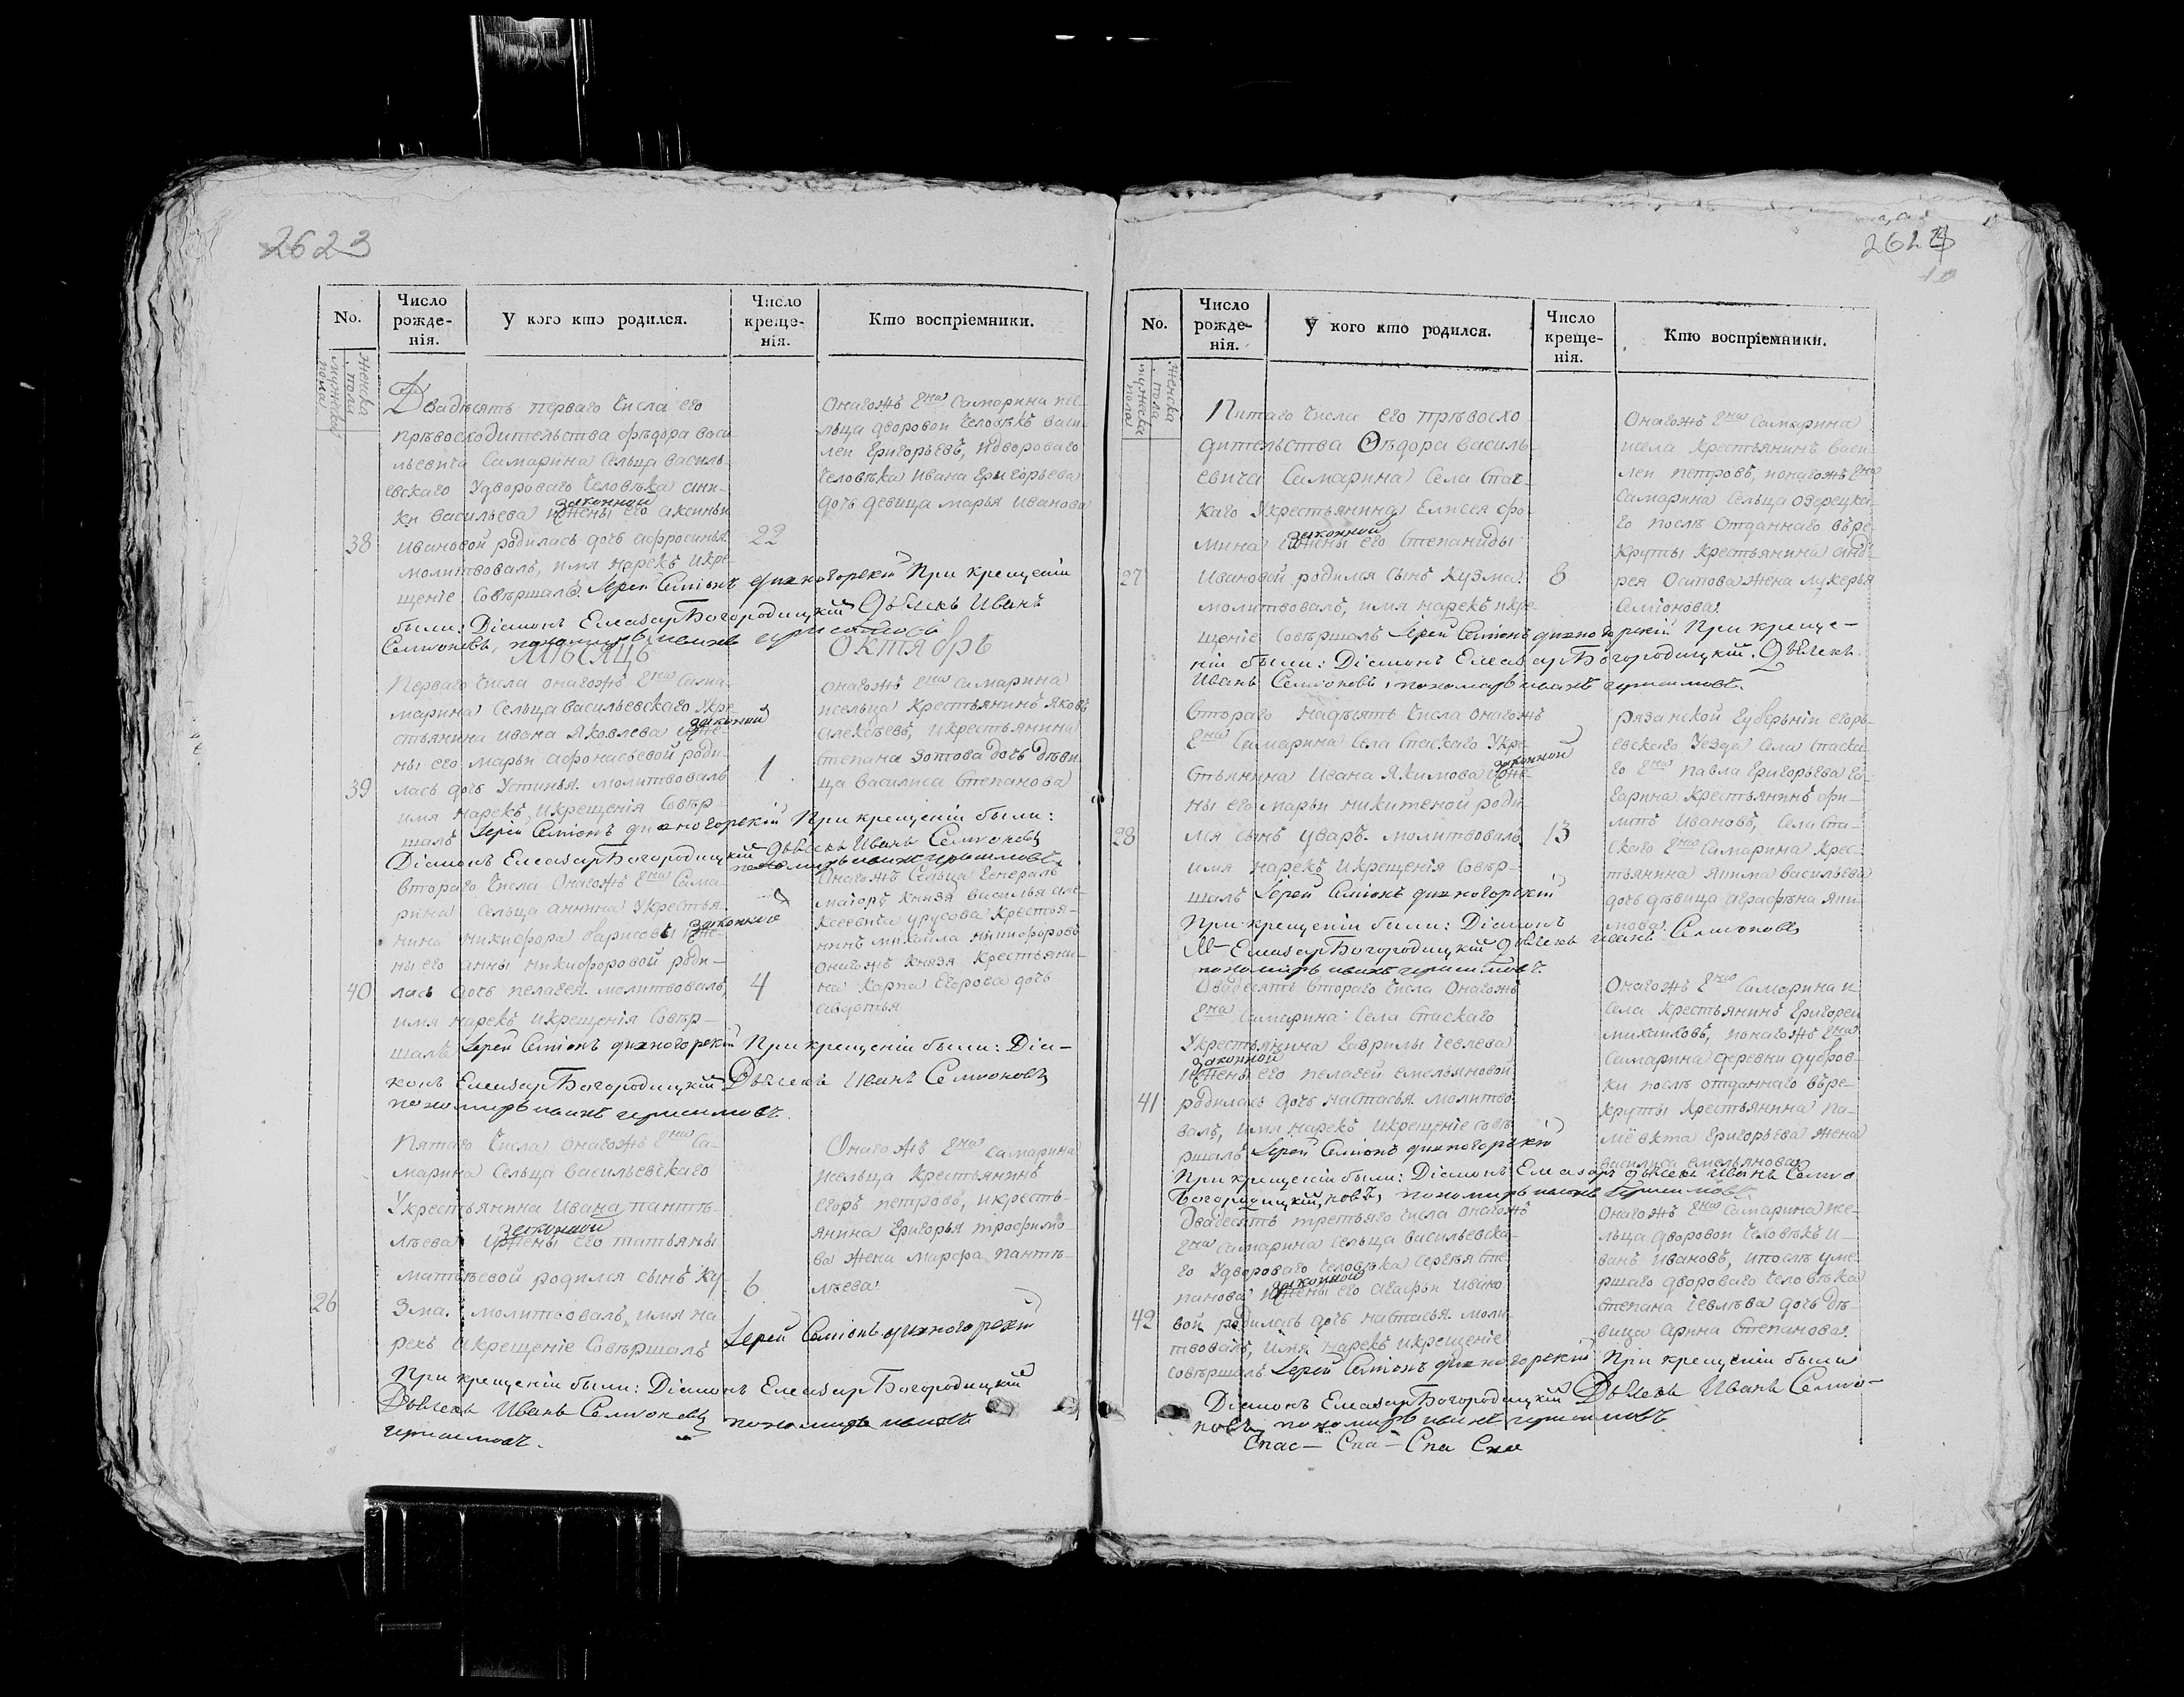 2623
No.
Число рожде-нія.
У кого кто родился.
Число креще-нія.
Кто воспріемники.
женска пола
мужеска пола
Двадѣсять перваго числа его
прѣвосходительства Фѣдора Васи
льевича Самарина сельца Василь-
евскаго Удвороваго человѣка
ки Васильева ижены его Аксиньи
законной
38 Ивановой родилась дочь Афросинья 22
молитвовалъ, имя нарекъ икре-
щеніе совѣршалъ Іерей Симіонъ При крещеніи
были: Діаконъ Елеазар Богородицкій Дьячекъ Иванъ
Семионовъ, пономарь иванъ
Онагожъ Гна Самарина
льца дворовой человѣкъ Васи
леи Григорьевъ, идвороваго
человѣка Ивана Григорьева
дочь девица Марья Иванова
Мѣсяцъ Октябрь
Перваго числа онагожъ Гна Сама-
марина сельца Васильевскаго Укре-
стьянина Ивана Яковлева иже-
законной
ны его Марьи Афонасьевой роди-
39 лась дочь Устинья. молитвовалъ 1
имя нарекъ, икрещенія совѣр-
шалъ Іерей Симіонъ При крещеніи были:
Діаконъ Елеазар Богородицкій Дьячекъ Иванъ Семионовъ
пономарь иванъ
онагожъ Гна Самарина
исельца крестьянинъ Яковъ
Алексѣевъ, икрестьянина
Степана Зотова дочь дѣви
ца Василиса Степанова
Втораго числа Онагожъ Гна Сама-
рина сельца Аннина Укрестья
нина Никифора Барисова иже-
законной
ны его Анны Никифоровой роди-
40 лась дочь Пелагея. молитвовалъ, 4
имя нарекъ икрещенія совѣр-
шалъ Іерей Симіонъ При крещеніи были: Діа-
конъ Елеазар Богородицкій Дьячекъ Иванъ Семионовъ
пономарь иванъ
Онагожъ сельца Генералъ
маіоръ Князя Василья Але-
ксеевича Урусова крестья-
нинъ Михайла Никифоровъ
онагожъ Князя крестьяни-
на Карпа Егорова дочь
Авдотья
Пятаго числа Онагожъ Гна Са-
марина сельца Васильевскаго
Укрестьянина Ивана Пантѣ-
лѣева ижены его Татьяны
законной
Матвѣевой родился сынъ Ку- 6
26 зма. молитвовалъ, имя на
рекъ икрещеніе совѣршалъ Іерей Симіонъ
При крещеніи были: Діаконъ Елеазар Богородицкій
Дьячекъ Иванъ Семионовъ пономарь иванъ
Онагожъ Гна Самарина
исельца крестьянинъ
Егоръ Петровъ, икресть-
янина Григорья Трофимо-
ва жена Марфа Пантѣ-
лѣева.
2624
No.
Число рожде-нія.
У кого кто родился.
Число креще-нія.
Кто воспріемники.
женска пола
мужеска пола
Пятаго числа его прѣвосхо
дительства Ѳѣдора Василь-
евича Самарина Села Спас-
каго Укрестьянина Елисея Фо-
мина ижены его Степаниды
законной
27 Ивановой родился сынъ Кузма 8
молитвовалъ, имя нарекъ икре-
щеніе совѣршалъ Іерей Симіонъ При креще-
ніи были: Діаконъ Елеазар Богородицкій. Дьячекъ
Иванъ Семионовъ, пономарь иванъ
Онагожъ Гна Самарина
исела крестьянинъ Васи-
леи Петровъ, ионагожъ Гна
Самарина сельца Озерецка-
го послѣ отданнаго вѣре-
круты крестьянина Анд-
рея Осипова жена Лукерья
Семионова.
Втораго надѣсять числа онагожъ
Гна Самарина Села Спаскаго Укре-
стьянина Ивана Якимова иже-
законной
ны его Марьи Никитеной роди-
28 лся сынъ Уваръ. молитвовалъ 13
имя нарекъ икрещенія совѣр-
шалъ Іерей Симіонъ
При крещеніи были: Діаконъ
Елеазар Богородицкій Дьячекъ Иванъ Семионовъ
пономарь иванъ
Рязанской Губѣрніи Егорь-
евскаго Уезда Села Спаска-
го Гна Павла Григорьева Га-
гарина крестьянинъ Фи-
липъ Ивановъ, Села Спа-
скаго Гна Самарина крес-
тьянина Якима Васильева
дочь дѣвица Аграфѣна Яки-
мова
Двадесять втораго числа Онагожъ
Гна Самарина Села Спаскаго
Укрестьянина Гаврилы Іевлева
законной
ижены его Пелагеи Емельяновой
41 родилась дочь Настасья. молитво-
валъ, имя нарекъ икрещеніе совѣ-
ршалъ Іерей Симіонъ
При крещеніи были: Діаконъ Елеазар Дьячекъ Иванъ Семио
Богородицкій, новъ, пономарь иванъ
Онагожъ Гна Самарина и
села крестьянинъ Григореи
Михаиловъ, ионагожъ Гна
Самарина деревни Дубров-
ки послѣ отданнаго вѣре-
круты крестьянина Па-
Григорьева жена
Василиса Емельянова
Двадесять третьяго числа Онагожъ
Гна Самарина сельца Васильевска-
го Удвороваго человѣка Сергѣя Сте
панова ижены его Агафьи Ивано
законной
42 вой родилась дочь Настасья. моли
твовалъ, имя нарекъ икрещеніе
совѣршалъ Іерей Симіонъ При крещеніи были
Діаконъ Елеазар Богородицкій Дьячекъ Иванъ Семио-
новъ, пономарь иванъ
Онагожъ Гна Самарина исе-
льца дворовои человѣкъ И-
ванъ Ивановъ, ипослѣ уме-
ршаго двороваго человѣка
Степана Іевлѣва дочь дѣ-
вица Арина Степанова.
Спас— Спа— Спа Спа